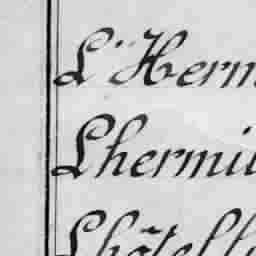 L'Herm
Lhermi
Lhôtell